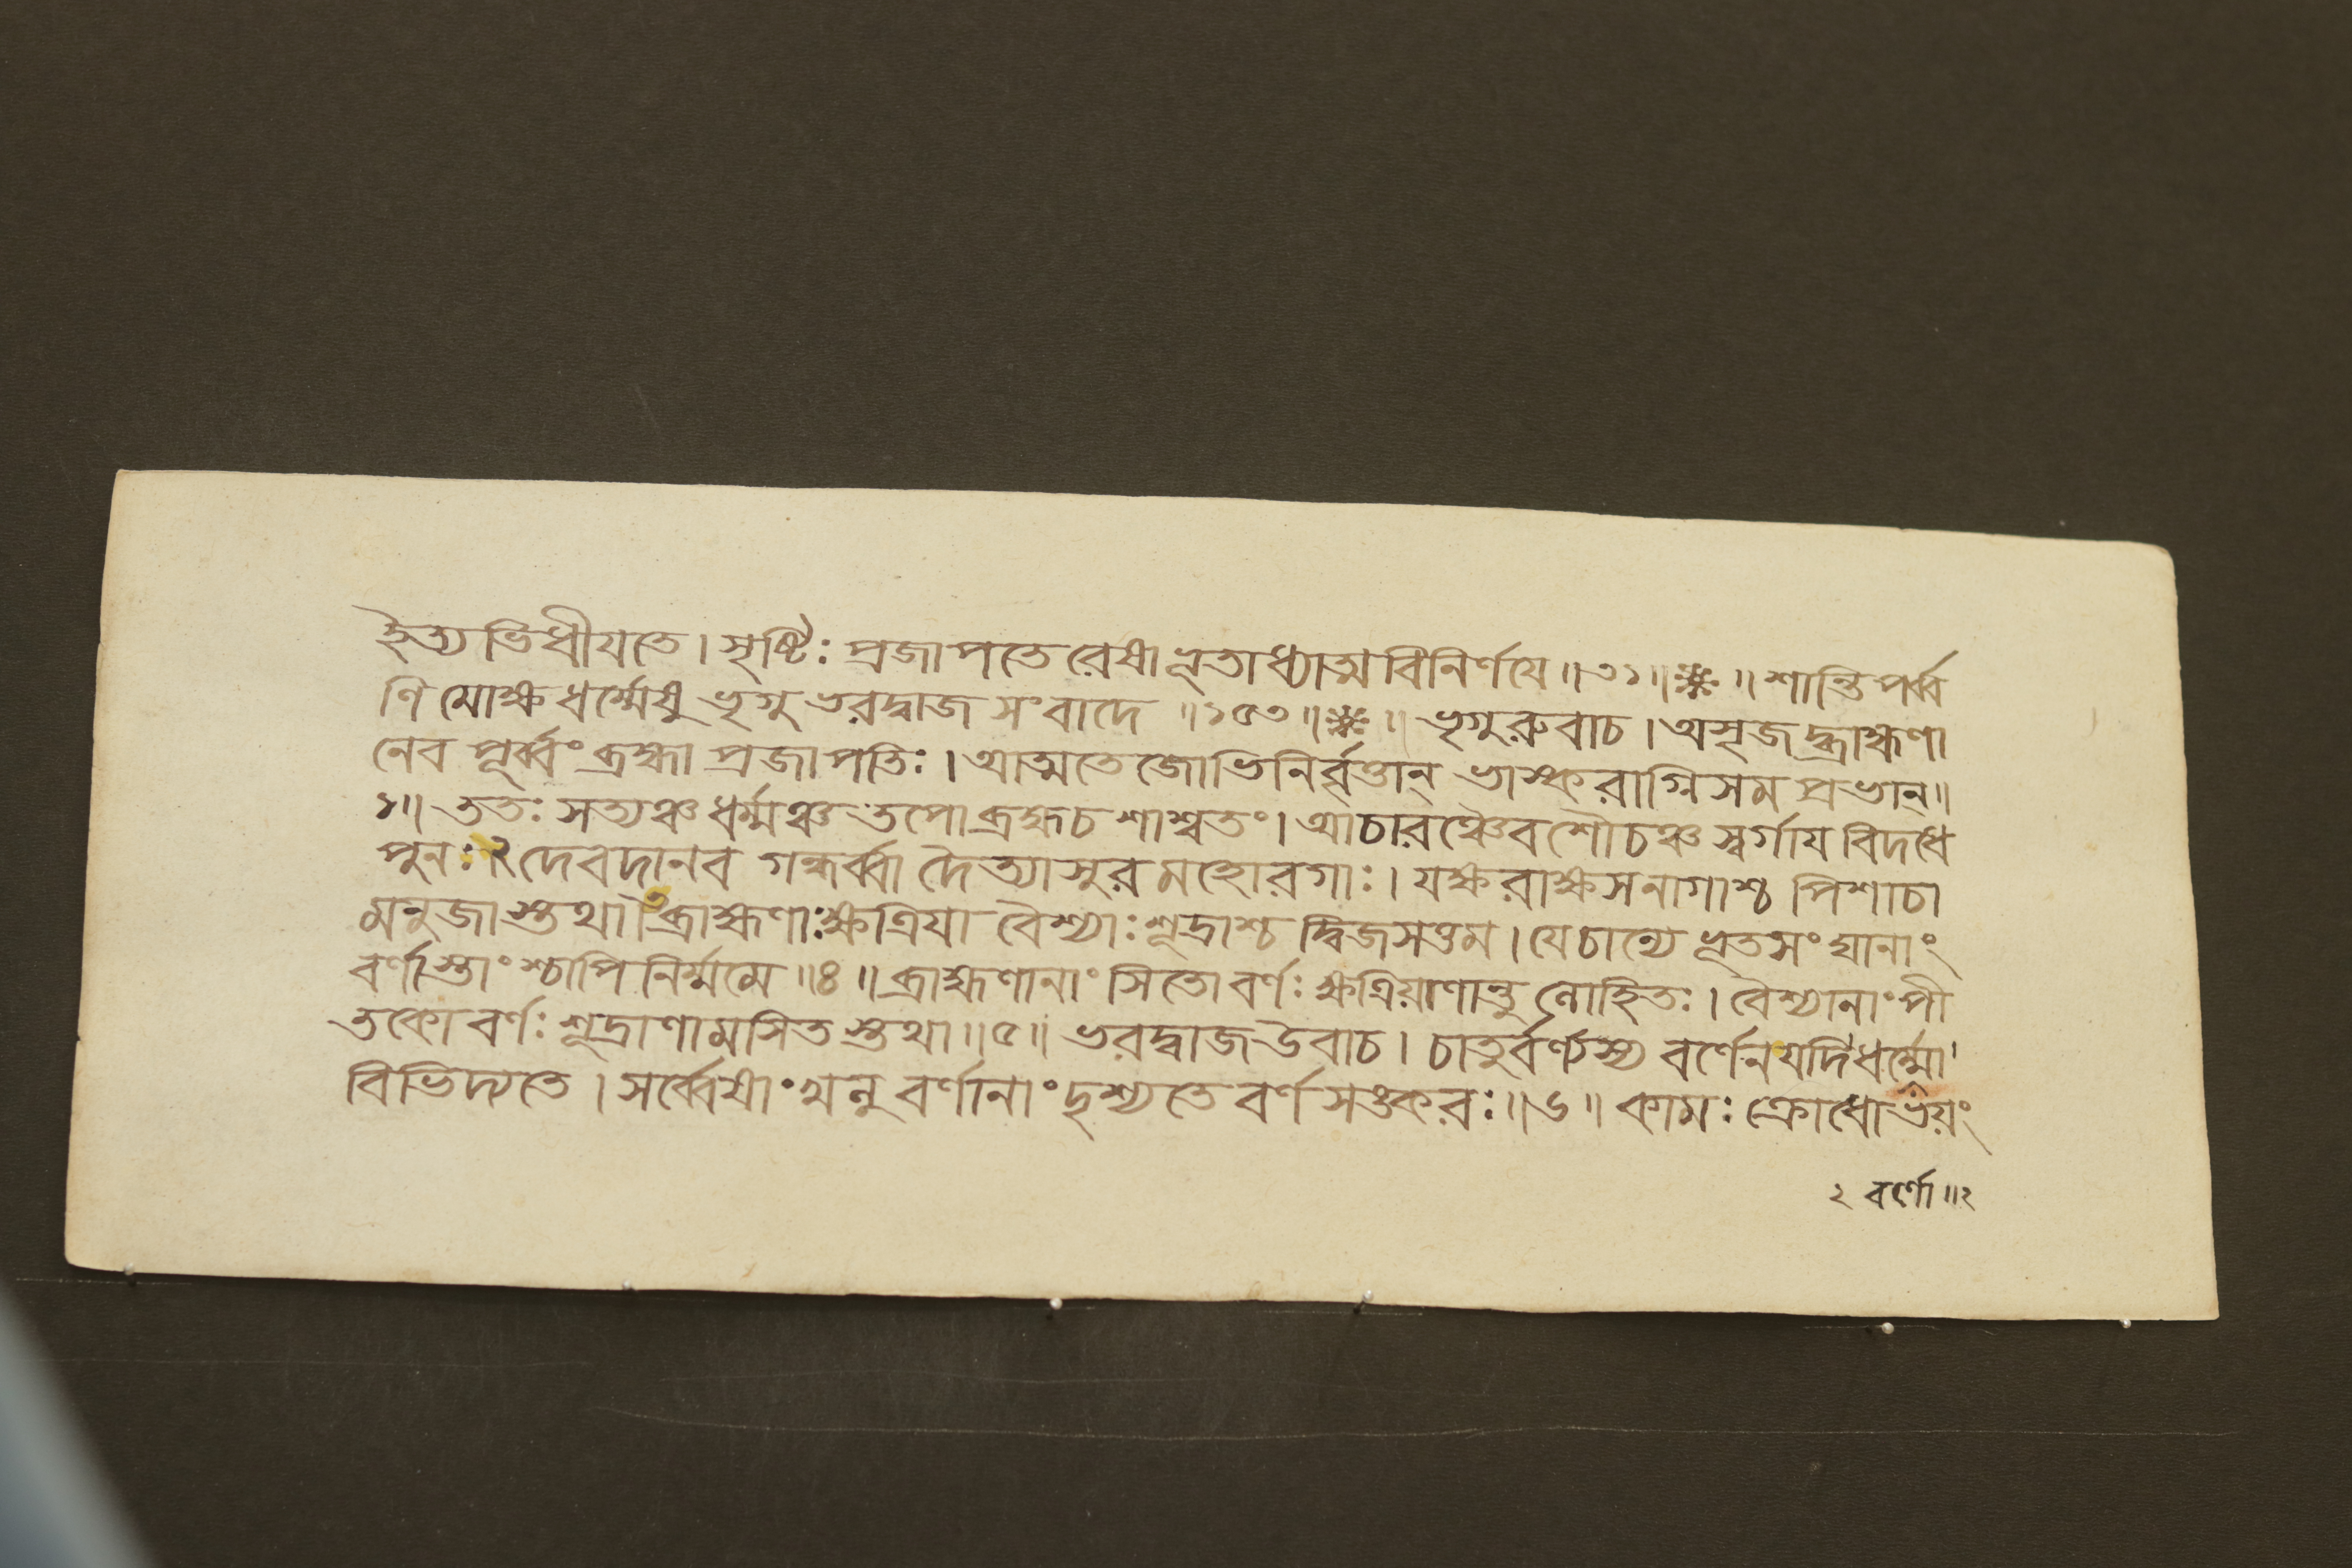 ইত্যভিধীযতে। সৃষ্টিঃ প্রজাপতেরেষা ভূতাধ্যাত্মবিনির্ণযে॥৩১॥ ॥ শান্তিপর্ব্ব
ণি মোক্ষধর্ম্মেষু ভৃগুভরদ্বাজসংবাদে ॥১৫৩॥ ॥ ভৃগুরুবাচ। অসৃজদ্ব্রাহ্মণা
নেব পূর্ব্বং ব্রহ্মা প্রজাপতিঃ। আত্মতেজোভিনির্ব্বৃত্তান্ ভাস্করাগ্নিসমপ্রভান্॥
১॥ ততঃ সত্যঞ্চ ধর্ম্মঞ্চ তপো ব্রহ্ম চ শাশ্বতং। আচারঞ্চৈব শৌচঞ্চ স্বর্গায বিদধে
পুনঃ।২ দেবদানব গন্ধর্ব্বা দৈত্যাসুরমহোরগাঃ। যক্ষরাক্ষসনাগাশ্চ পিশাচা
মনুজাস্তথা।৩ ব্রাহ্মণাঃ ক্ষত্রিযা বৈশ্যাঃ শূদ্রাশ্চ দ্বিজসত্তম। যে চান্যে ভূতসংঘানাং
বর্ণাস্তাংশ্চাপি নির্ম্মমে॥৪॥ ব্রাহ্মণানাং সিতো বর্ণঃ ক্ষত্রিয়াণান্তু লোহিতঃ। বৈশ্যানাং পী
তকো বর্ণঃ শূদ্রাণামসিতস্তথা॥৫॥ ভরদ্বাজ উবাচ। চাতুর্বর্ণ্যস্য বর্ণেন যদি ধর্ম্মো
বিভিদ্যতে। সর্ব্বেষাং খলু বর্ণানাং দৃশ্যতে বর্ণসঙ্করঃ॥৬॥ কামঃ ক্রোধো ভয়ং
২ বর্ণো॥২